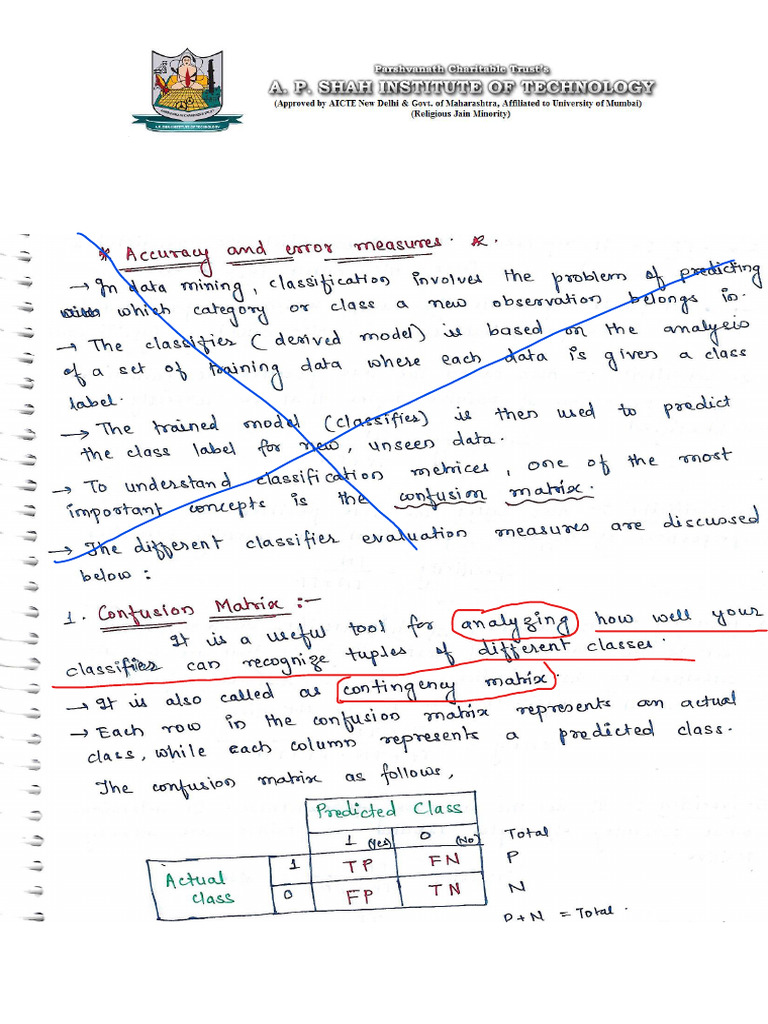 Parshvanath Charitable Trust's
A. P. SHAH INSTITUTE OF TECHNOLOGY
(Approved by AICTE New Delhi & Govt. of Maharashtra, Affiliated to University of Mumbai)
(Religious Jain Minority)
A.P. SHAH INSTITUTE OF TECHNOLOGY
* Accuracy and error measures.
→ In data mining, classification involves the problem of predicting
which category or class a new observation belongs in.
→ The classifier (derived model) is based on the analysis
of a set of training data where each data is given a class
label.
→ The trained model (classifies) is then used to predict
the class label for new, unseen data.
→ To understand classification metrices, one of the most
important concepts is the confusion matrix.
→ The different classifier evaluation measures are discussed
below :
1. Confusion Matrix :-
It is a useful tool for analyzing how well your
classifier can recognize tuples of different classes.
→ It is also called as contingency matrix.
→ Each row in the confusion matrix represents an actual
class, while each column represents a predicted class.
The confusion matrix as follows,
Predicted Class
1 (Yes) 0 (No) Total
Actual class
1 TP FN P
0 FP TN N
P+N = Total.